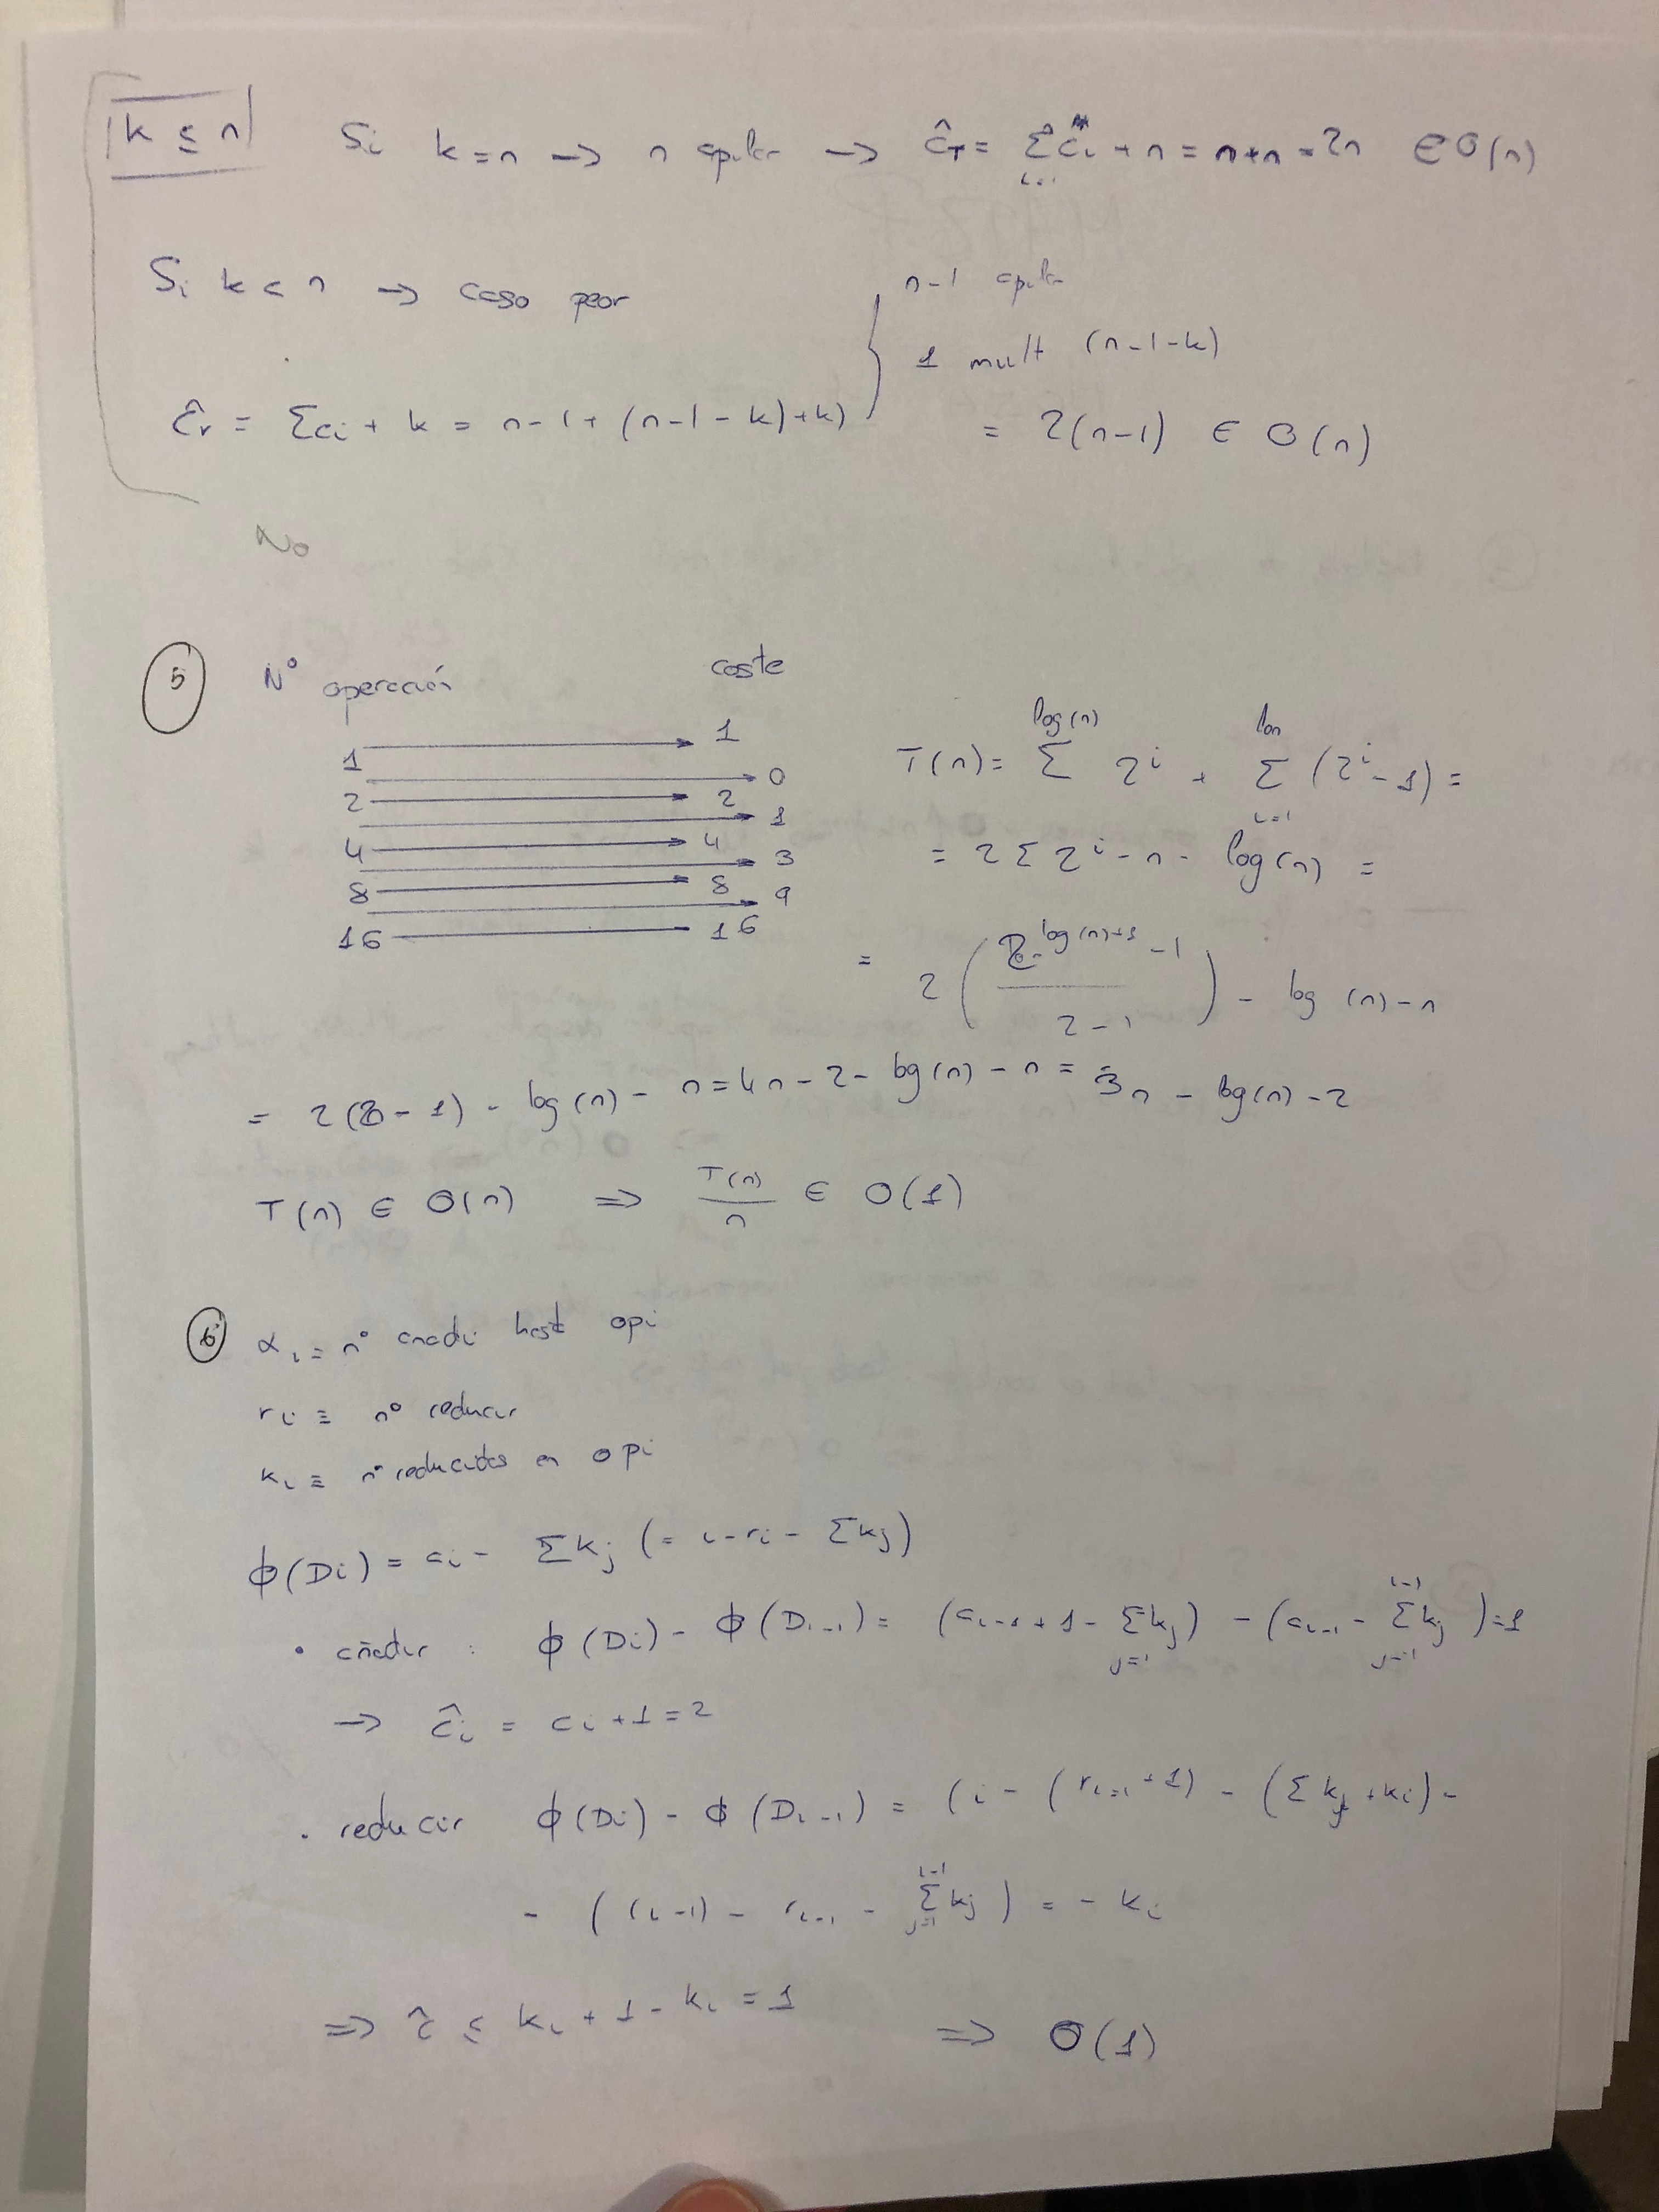 k ≤ n Si k = n → n apilar → ĉT = Σ ci + n = n+n = 2n ∈ O(n)
i=1
Si k < n → caso peor
n-1 apilar
1 mult (n-1-k)
ĉT = Σci + k = n-1+(n-1-k)+k) = 2(n-1) ∈ O(n)
No
5 Nº operación coste
1 → 1
→ 0
2 → 2
→ 1
4 → 4
→ 3
8 → 8
→ 9
16 — 16
T(n) = Σ^log(n) 2^i + Σ_{i=1} (2^i - 1) =
= 2 Σ 2^i - n - log(n) =
= 2 ( (2^{log(n)+1} - 1) / (2-1) ) - log(n) - n
= 2( - 1) - log(n) - n = 4n - 2 - log(n) - n = 3n - log(n) - 2
T(n) ∈ O(n) ⇒ T(n)/n ∈ O(1)
6 αi = nº hast opi
ri ≡ nº reducir
ki ≡ nº reducidos en opi
ϕ(Di) = ai - Σkj (= i - ri - Σkj)
• añadir : ϕ(Di) - ϕ(Di-1) = (ai-1 + 1 - Σ_{j=1} kj) - (ai-1 - Σ_{j=1}^{i-1} kj) = 1
→ ĉi = ci + 1 = 2
• reducir ϕ(Di) - ϕ(Di-1) = (i - (ri-1 + 1) - (Σ kj + ki) -
- ((i-1) - ri-1 - Σ_{j=1}^{i-1} kj) = - ki
⇒ ĉ ≤ ki + 1 - ki = 1 ⇒ O(1)